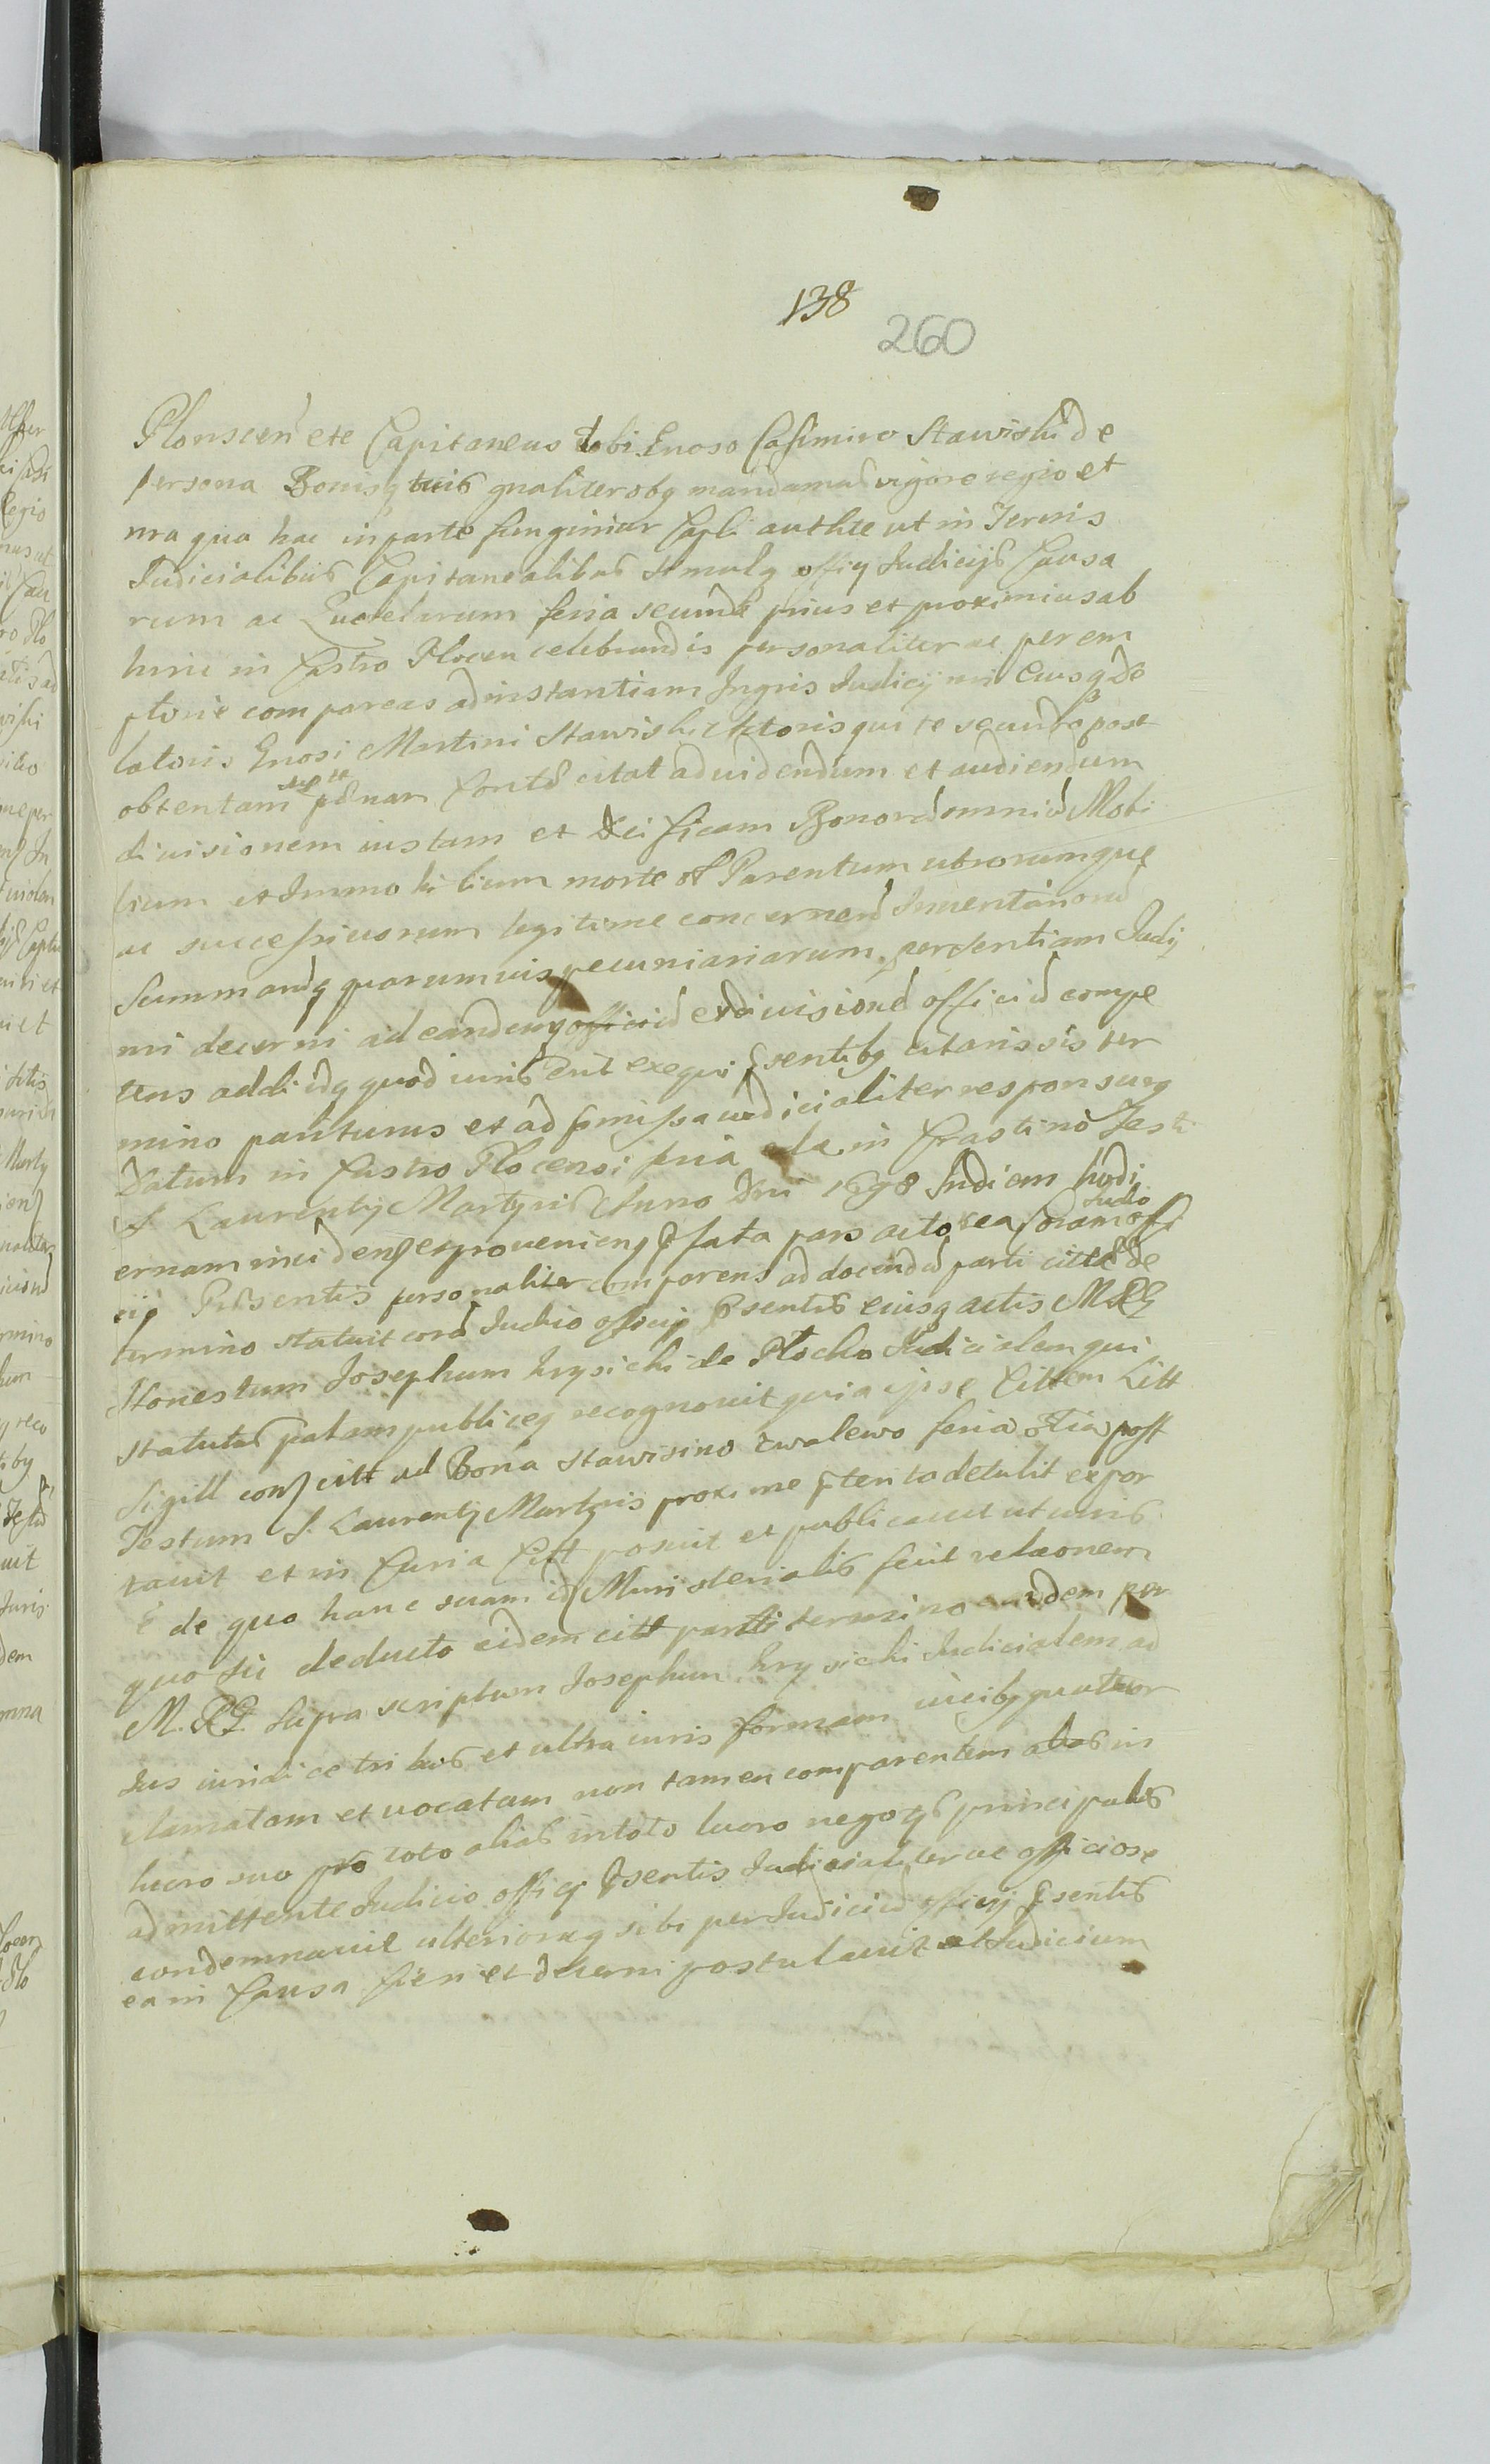 138
260
Plonscen ete Capitaneus tibi Gnoso Casimiro Stawiski de
persona Bonisq tuis gnaliter obq mandamus vigore regio et
nra qua hac in parte fungimur Capli authte ut in Termis
Judicialibus Capitanealibus Simulq officij Judicijs Causa
rum ac Querelarum feria secunda prius et proximius ab
hinc in Castro Plocen celebrandis personaliter ac perem
ptorie compareas ad instantiam Ingris Judicij nri Eiusq de
latoris Gnosi Martini Stawiski Actoris qui te secundo post
obtentam sup te pdnam Contd citat ad videndum et audiendum
divisionem iustam et Bonord omniud Mobi
lium et Immobilium morte ol Parentum utrorumque
ac successivorum legitime concernend Inventariord
Summardq quarumvis pecuniariarum, per sentiam Judij
nri decerni ad eandemq divisiond officiud compe
tens addi idq quod iuris erit exequi psentibq citaris sis ter
mino pariturus et ad pmissa iudicialiter responsurq
Datum in Castro Plocensi feria in Crastino Festi
S. Laurentij Martyris Anno Dni 1698 In diem hodi
ernam incidenq et provenienq pfata pars actorea Coram Judio offi
cij Prsentis personaliter comparens ad docendud parti citte de
termino statuit cord Judio officij psentis eiusq actis MRG
Honestum Josephum krysicki de Plocko Judicialem qui
statutus palam publiceq recognovit quia ipse Cittem Litt
Sigill citt ad Bona Stawisino feria tia post
Festum S. Laurentij Martyris proxime pterito detulit expor
tavit et in Curia Citt posuit et publicavit ut iuris
e de quo hanc suam id Ministerialis fecit relaonem
quo sic deducto eidem citt parti termino eandem per
M.R.G. supra scriptum Josephum krysicki Judicialem ad
Jus iuridice tribus et ultra iuris formam vicibq quatuor
clamatam et vocatam non tamen comparentem in
lucro suo pro toto alias in toto lucro negotij principalis
admittente Judicio officij psentis Judicialiter ac officiose
condemnavit ulteriorq sibi per Judiciud officij psentis
ea in Causa fieri et decerni postulavit et Judicium